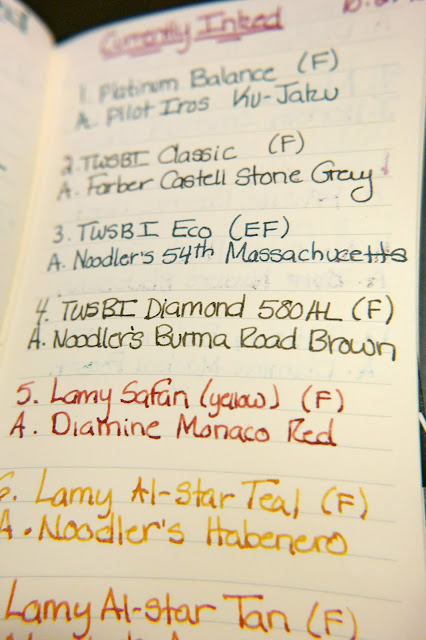 Currently Inked
1. Platinum Balance (F)
A. Pilot Iros Ku-Jaku
2. TWSBI Classic (F)
A. Farber Castell Stone Grey
3. TWSBI Eco (EF)
A. Noodler's 54th Massachucetts
4. TWSBI Diamond 580AL (F)
A. Noodler's Burma Road Brown
5. Lamy Safari (yellow) (F)
A. Diamine Monaco Red
6. Lamy Al-Star Teal (F)
A. Noodler's Habenero
Lamy Al-Star Tan (F)